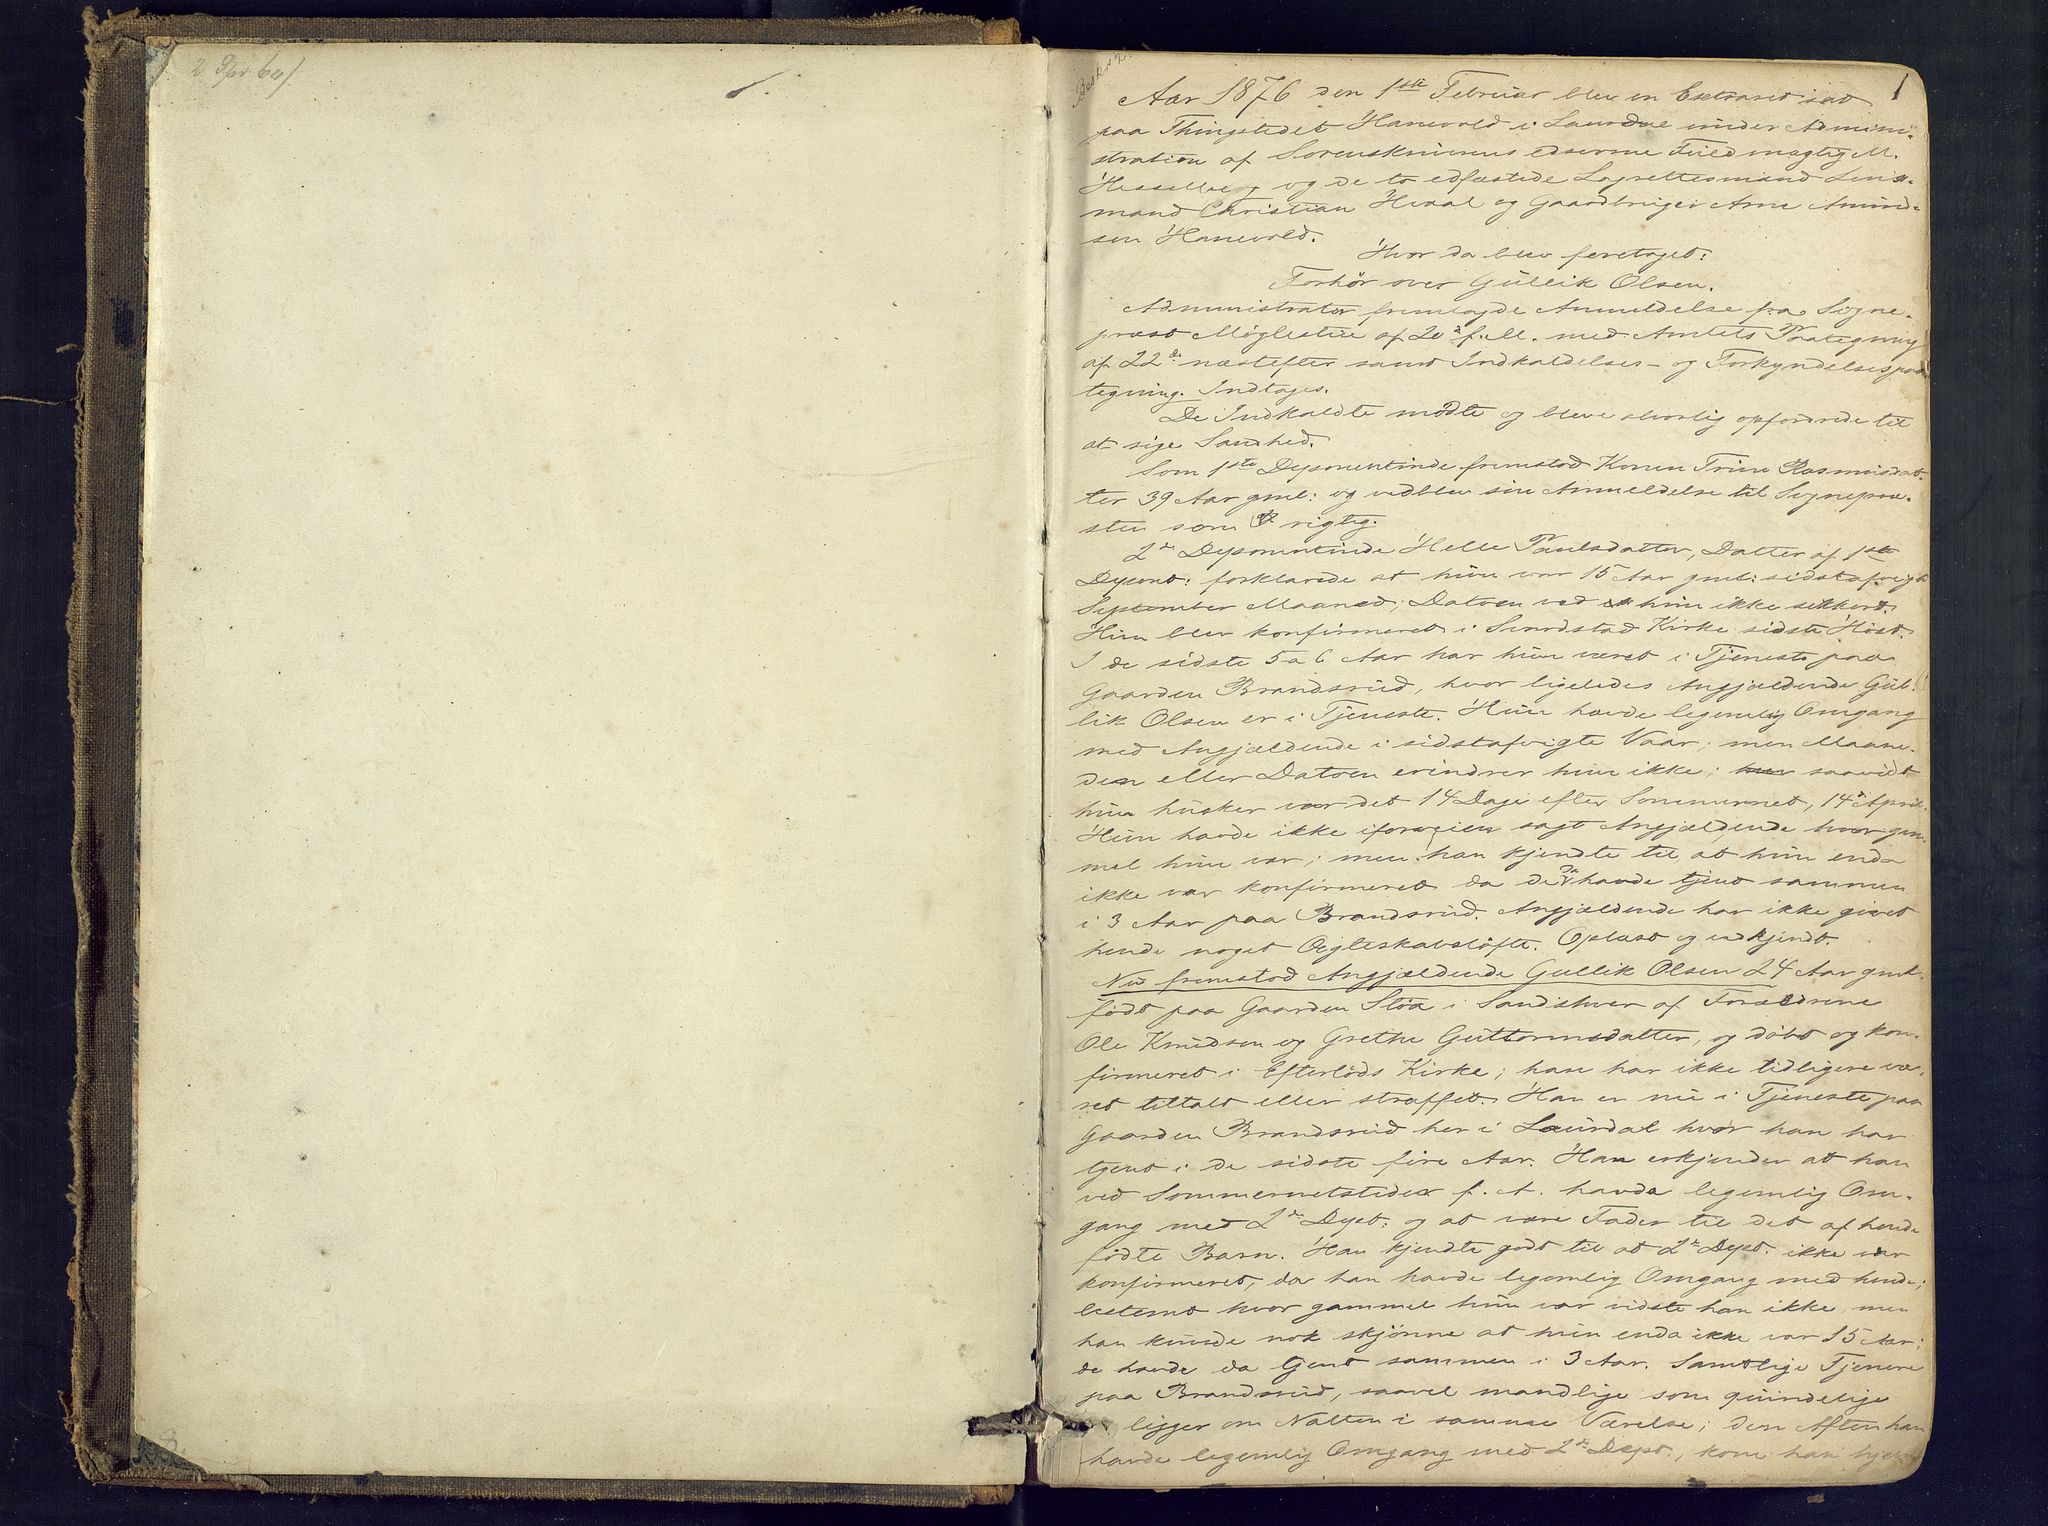 1
Aar 1876 den 1ste Februar blev en Extraret sat
paa Thingstedet Hanevold i Laurdal under Admini-
stration af Sorenskriverens edsvorne Fuldmægtig M.
Hesselberg og de to edfæstede Lagrettesmænd Lens-
mand Christian Hvaal og Gaardbruger Arne Amund-
sen Hanevold.
Hvor da blev foretaget:
Forhør over Gullik Olsen.
Administrator fremlagde Anmeldelse fra Sogne-
præst Møglestue af 20de f. M. med Amtets Paategning
af 22de næstefter samt Indkaldelses- og Forkyndelsespaa-
tegning. Indtages.
De Indkaldte mødte og bleve alvorlig opfordrede til
at sige Sandhed.
Som 1ste Deponentinde fremstod Konen Trine Rasmusdat-
ter 39 Aar gml: og vedblev sin Anmeldelse til Sognepræ-
sten som rigtig.
2de Deponentinde Helle Paulsdatter, Datter af 1ste
Depont: forklarede at hun var 15 Aar gml: sidstafvigte
September Maaned; Datoen ved hun ikke sikkert.
Hun blev konfirmeret i Kirke sidste Høst.
I de sidste 5 a 6 Aar har hun været i Tjeneste paa
Gaarden Brandsrud, hvor ligeledes Angjældende Gul-
lik Olsen er i Tjeneste. Hun havde legemlig Omgang
med Angjældende i sidstafvigte Vaar; men Maane-
den eller Datoen erindrer hun ikke; saavidt
hun husker var det 14 Dage efter Sommernat, 14de April.
Hun havde ikke iforveien sagt Angjældende hvor gam-
mel hun var; men han kjendte til at hun enda
ikke var konfirmeret da de da havde tjent sammen
i 3 Aar paa Brandsrud. Angjældende har ikke givet
hende noget Ægteskabsløfte. Oplæst og vedkjendt.
Nu fremstod Angjældende Gullik Olsen 24 Aar gml.
født paa Gaarden Støa i Sandshver af Forældrene
Ole Knudsen og Grethe Guttormsdatter, og døbt og kon-
firmeret i Efterløds Kirke; han har ikke tidligere væ-
ret tiltalt eller straffet. Han er nu i Tjeneste paa
Gaarden Brandsrud her i Laurdal hvor han har
tjent i de sidste fire Aar. Han erkjender at han
ved Sommernatstider f. A. havde legemlig Om-
gang med 2de Dept: og at være Fader til det af hende
fødte Barn. Han kjendte godt til at 2de Dept. ikke var
konfirmeret, da han havde legemlig Omgang med hende;
bestemt hvor gammel hun var vidste han ikke, men
han kunde nok skjønne at hun enda ikke var 15 Aar;
de havde da tjent sammen i 3 Aar. Samtlige Tjenere
paa Brandsrud, saavel mandlige som quindelige
ligger om Natten i samme Værelse; den Aften han
havde legemlig Omgang med 2de Dept., kom han hjem